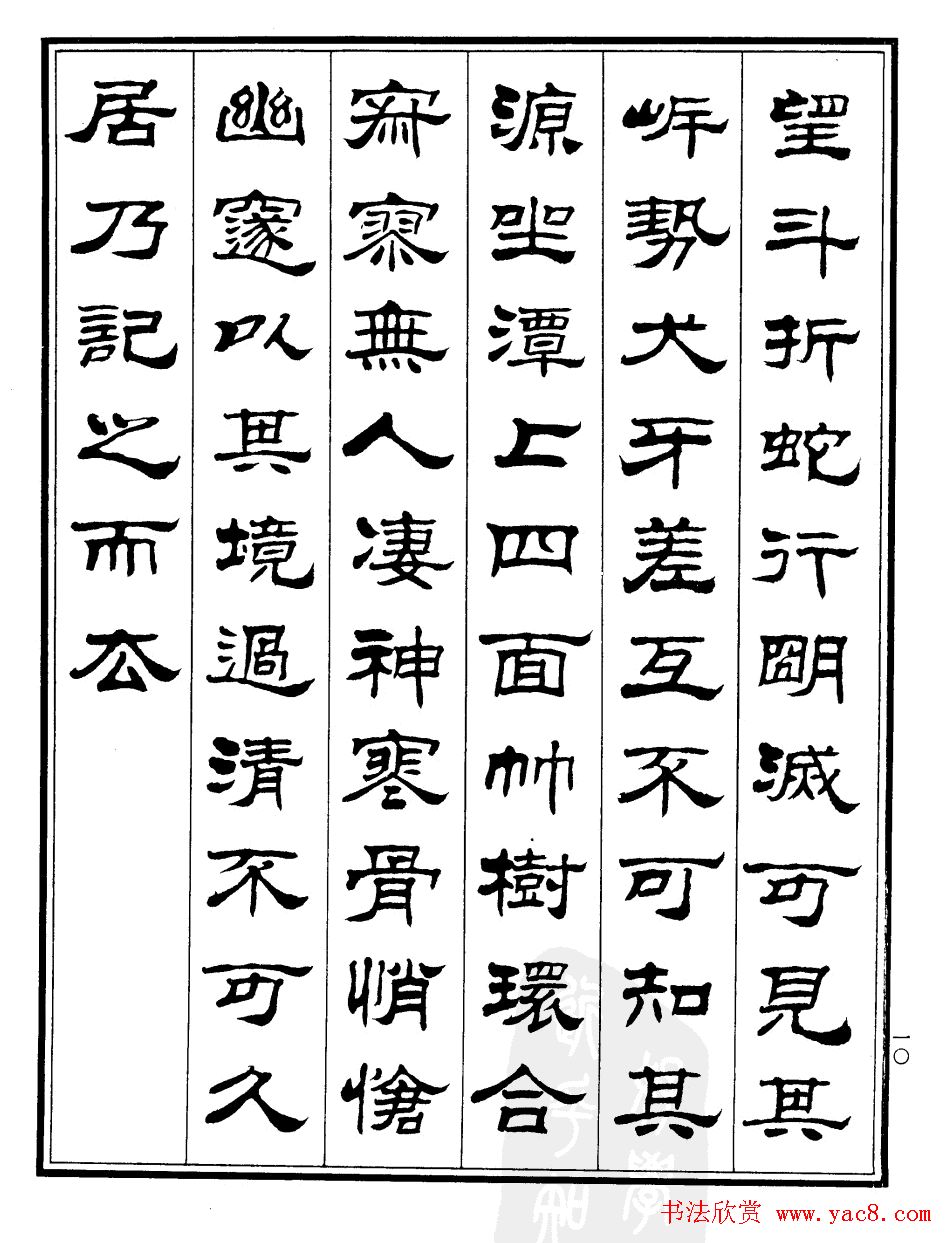 望斗折蛇行朙滅可見其
岸勢犬牙差互不可知其
源坐潭上四面竹樹環合
寂寥無人凄神寒骨悄愴
幽邃以其境過清不可久
居乃記之而去
一〇
书法欣赏 www.yac8.com